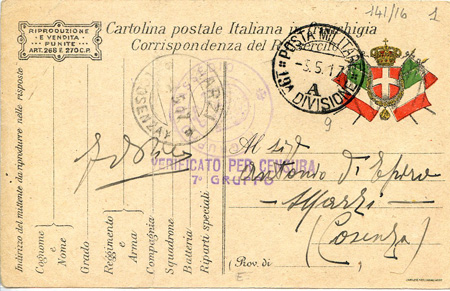 141/16 1
RIPRODUZIONE
E VENDITA
PUNITE
ART. 268 E 270 C.P.
Cartolina postale Italiana in Franchigia
Corrispondenza del R. Esercito
POSTA MILITARE
- 3.5.17
A
DIVISIONE
9
MARZI
(COSENZA)
VERIFICATO PER CENSURA
7° GRUPPO
Al sig
Antonio di
Marzi
(Cosenza)
(Prov. di
Indirizzo del mittente da riprodurre nelle risposte
Cognome e
Nome
Grado
Reggimento e
Arma
Compagnia
Squadrone
Batteria
Riparti speciali
E